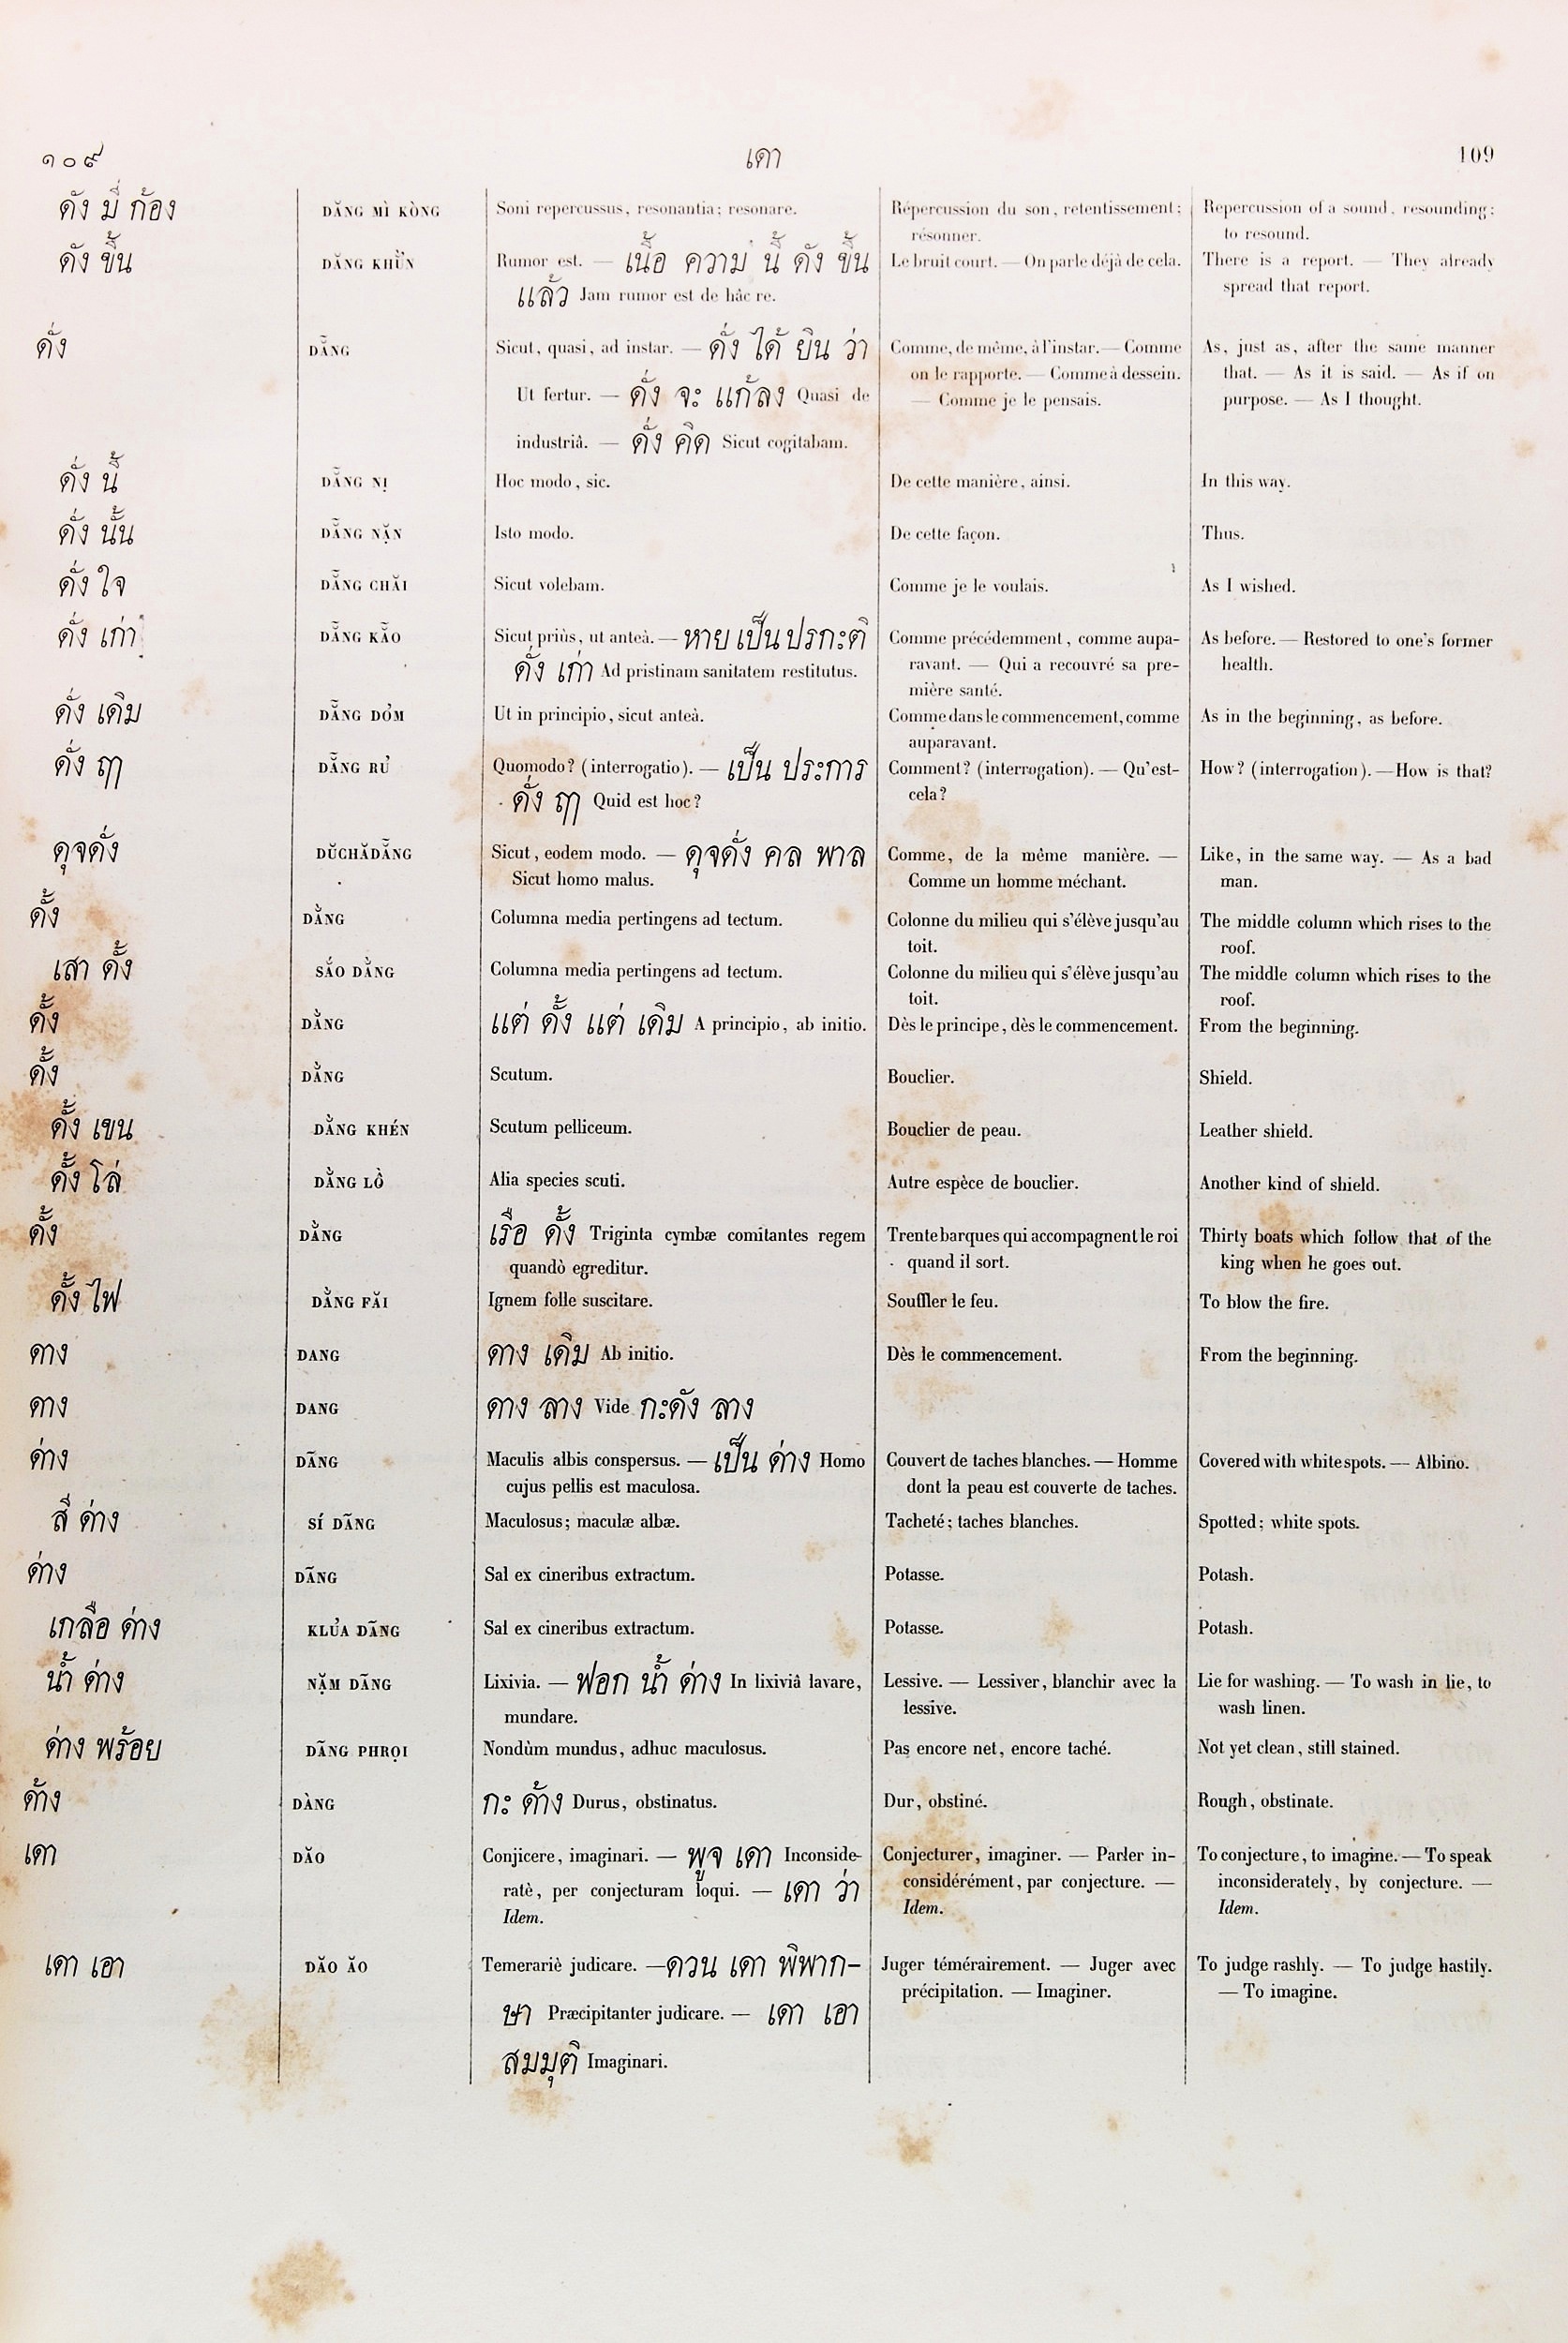 ๑๐๙ เดา 109
ดัง มี่ ก้อง DĂNG MÌ KÒNG Soni repercussus, resonantia; resonare. Répercussion du son, retentissement; Repercussion of a sound, resounding;
résonner. to resound.
ดัง ขึ้น DĂNG KHỦN Rumor est. — เนื้อ ความ นี้ ดัง ขึ้น Le bruit court. — On parle déjà de cela. There is a report. — They already
แล้ว Jam rumor est de hâc re. spread that report.
ดั่ง DẴNG Sicut, quasi, ad instar. — ดั่ง ได้ ยิน ว่า Comme, de même, à l'instar. — Comme As, just as, after the same manner
Ut fertur. — ดั่ง จะ แก้ลง Quasi de on le rapporte. — Comme à dessein. that. — As it is said. — As if on
industriâ. — ดั่ง คิด Sicut cogitabam. — Comme je le pensais. purpose. — As I thought.
ดั่ง นี้ DẴNG NỊ Hoc modo, sic. De cette manière, ainsi. In this way.
ดั่ง นั้น DẴNG NẶN Isto modo. De cette façon. Thus.
ดั่ง ใจ DẴNG CHĂI Sicut volebam. Comme je le voulais. As I wished.
ดั่ง เก่า DẴNG KẴO Sicut priùs, ut anteà. — หาย เป็น ปรกะติ Comme précédemment, comme aupa- As before. — Restored to one's former
ดั่ง เก่า Ad pristinam sanitatem restitutus. ravant. — Qui a recouvré sa pre- health.
mière santé.
ดั่ง เดิม DẴNG DO᾽M Ut in principio, sicut anteà. Comme dans le commencement, comme As in the beginning, as before.
auparavant.
ดั่ง ฤๅ DẴNG RU᾽ Quomodo? (interrogatio). — เป็น ประการ Comment? (interrogation). — Qu'est- How? (interrogation). — How is that?
ดั่ง ฤๅ Quid est hoc? cela?
ดุจดั่ง DŬCHĂDẴNG Sicut, eodem modo. — ดุจดั่ง คล พาล Comme, de la même manière. — Like, in the same way. — As a bad
Sicut homo malus. Comme un homme méchant. man.
ดั้ง DẰNG Columna media pertingens ad tectum. Colonne du milieu qui s'élève jusqu'au The middle column which rises to the
toit. roof.
เสา ดั้ง SẮO DẰNG Columna media pertingens ad tectum. Colonne du milieu qui s'élève jusqu'au The middle column which rises to the
toit. roof.
ดั้ง DẰNG แต่ ดั้ง แต่ เดิม A principio, ab initio. Dès le principe, dès le commencement. From the beginning.
ดั้ง DẰNG Scutum. Bouclier. Shield.
ดั้ง เขน DẰNG KHÉN Scutum pelliceum. Bouclier de peau. Leather shield.
ดั้ง โล่ DẰNG LỒ Alia species scuti. Autre espèce de bouclier. Another kind of shield.
ดั้ง DẰNG เรือ ดั้ง Triginta cymbæ comitantes regem Trente barques qui accompagnent le roi Thirty boats which follow that of the
quandò egreditur. quand il sort. king when he goes out.
ดั้ง ไฟ DẰNG FĂI Ignem folle suscitare. Souffler le feu. To blow the fire.
ดาง DANG ดาง เดิม Ab initio. Dès le commencement. From the beginning.
ดาง DANG ดาง ลาง Vide กะดัง ลาง
ด่าง DÃNG Maculis albis conspersus. — เป็น ด่าง Homo Couvert de taches blanches. — Homme Covered with white spots. — Albino.
cujus pellis est maculosa. dont la peau est couverte de taches.
สี ด่าง SÍ DÃNG Maculosus; maculæ albæ. Tacheté; taches blanches. Spotted; white spots.
ด่าง DÃNG Sal ex cineribus extractum. Potasse. Potash.
เกลือ ด่าง KLU᾽A DÃNG Sal ex cineribus extractum. Potasse. Potash.
น้ำ ด่าง NẶM DÃNG Lixivia. — ฟอก น้ำ ด่าง In lixiviâ lavare, Lessive. — Lessiver, blanchir avec la Lie for washing. — To wash in lie, to
mundare. lessive. wash linen.
ด่าง พร้อย DÃNG PHRỌI Nondùm mundus, adhuc maculosus. Pas encore net, encore taché. Not yet clean, still stained.
ด้าง DÀNG กะ ด้าง Durus, obstinatus. Dur, obstiné. Rough, obstinate.
เดา DĂO Conjicere, imaginari. — พูจ เดา Inconside- Conjecturer, imaginer. — Parler in- To conjecture, to imagine. — To speak
ratè, per conjecturam loqui. — เดา ว่า considérément, par conjecture. — inconsiderately, by conjecture. —
Idem. Idem. Idem.
เดา เอา DĂO ĂO Temerariè judicare. — ดวน เดา พิพาก- Juger témérairement. — Juger avec To judge rashly. — To judge hastily.
ษา Præcipitanter judicare. — เดา เอา précipitation. — Imaginer. — To imagine.
สมมุติ Imaginari.